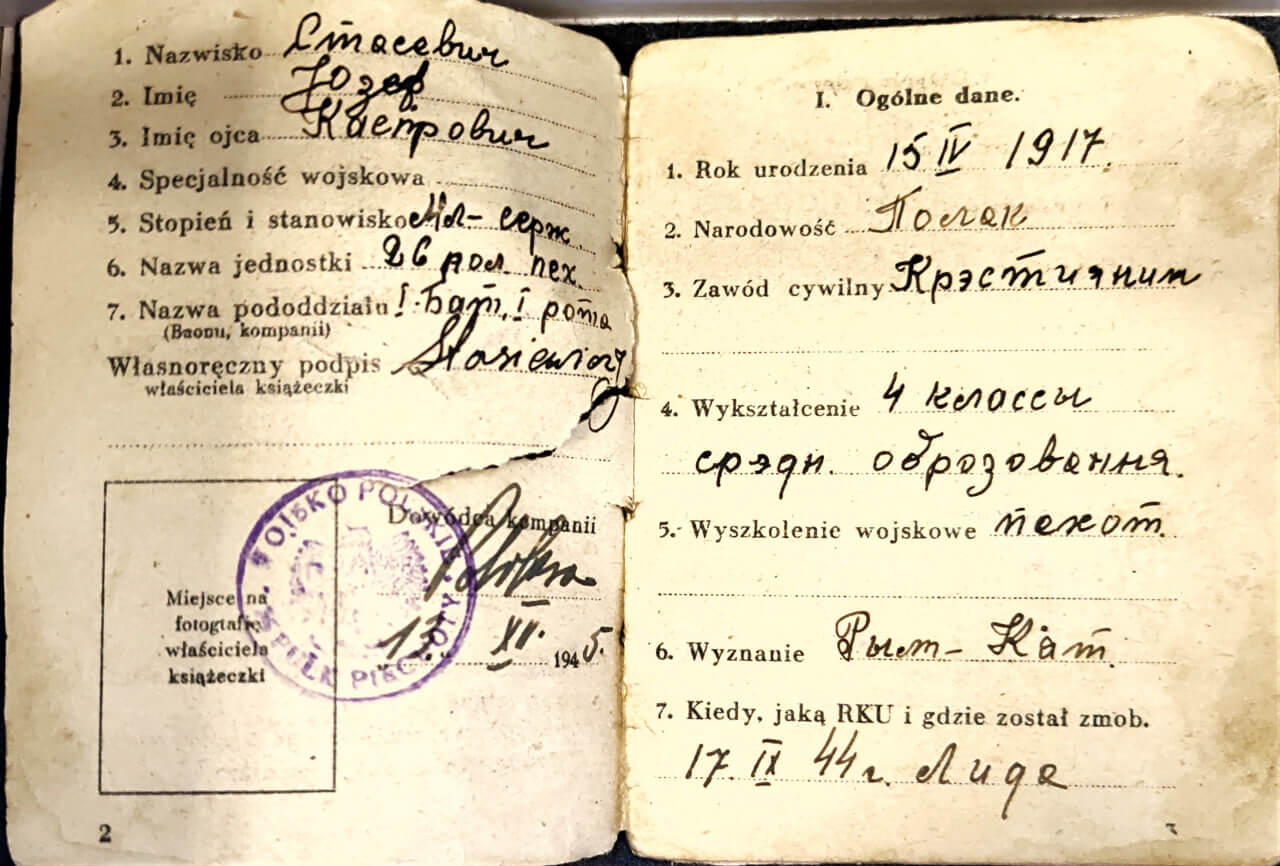 1. Nazwisko Стасевич
2. Imię Юзеф
3. Imię ojca Каспрович
4. Specjalność wojskowa
5. Stopień i stanowisko Мл- серж.
6. Nazwa jednostki 26 pол. пех.
7. Nazwa pododdziału I бат. I рота
(Baonu, kompanii)
Własnoręczny podpis Stasiewicz
właściciela książeczki
WOJSKO POLSKIE PUŁK PIECHOTY
Dowódca kompanii
13. XII. 1945.
Miejsce na
fotografię
właściciela
książeczki
2
I. Ogólne dane.
1. Rok urodzenia 15 IV 1917.
2. Narodowość Поляк
3. Zawód cywilny Крэстиянин
4. Wykształcenie 4 классы
срэдн. оброзования.
5. Wyszkolenie wojskowe пехот.
6. Wyznanie Рым- Кат.
7. Kiedy, jaką RKU i gdzie został zmob.
17. IX 44 г. Лида